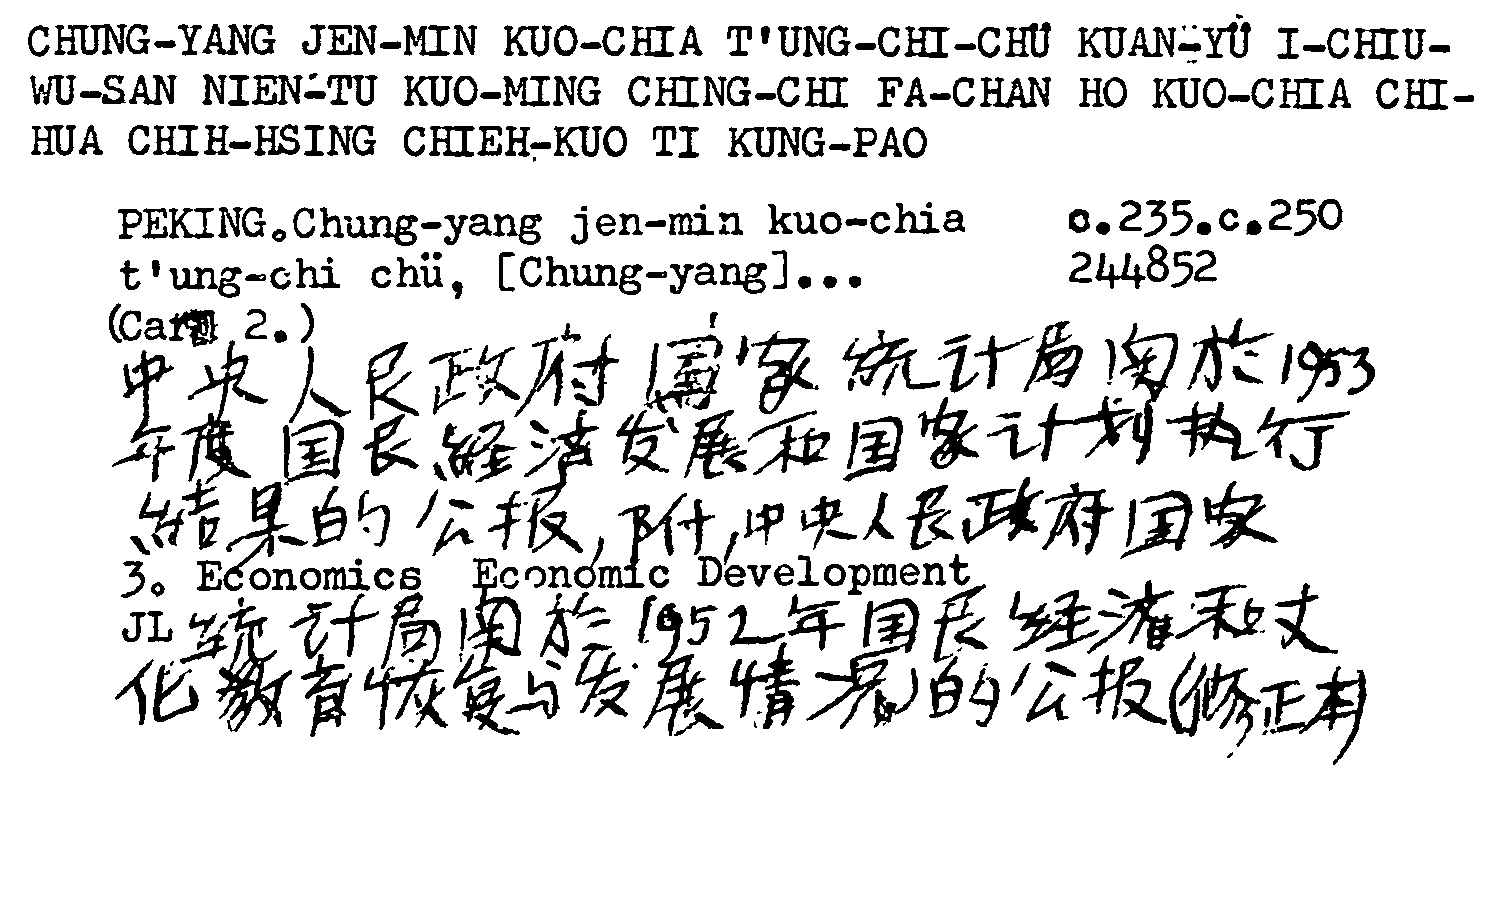 CHUNG-YANG JEN-MIN KUO-CHIA T'UNG-CHI-CHÜ KUAN-YÜ I-CHIU-
WU-SAN NIEN-TU KUO-MING CHING-CHI FA-CHAN HO KUO-CHIA CHI-
HUA CHIH-HSING CHIEH-KUO TI KUNG-PAO
PEKING.Chung-yang jen-min kuo-chia o.235.c.250
t'ung-chi chü, [Chung-yang]... 244852
(Card 2.)
中央人民政府国家統计局関於1953
年度国民経済发展和国家计划执行
結果的公报,附,中央人民政府国家
3. Economics Economic Development
JL 統计局関於1952年国民経濟和文
化教育恢复与发展情况的公报(修正本)